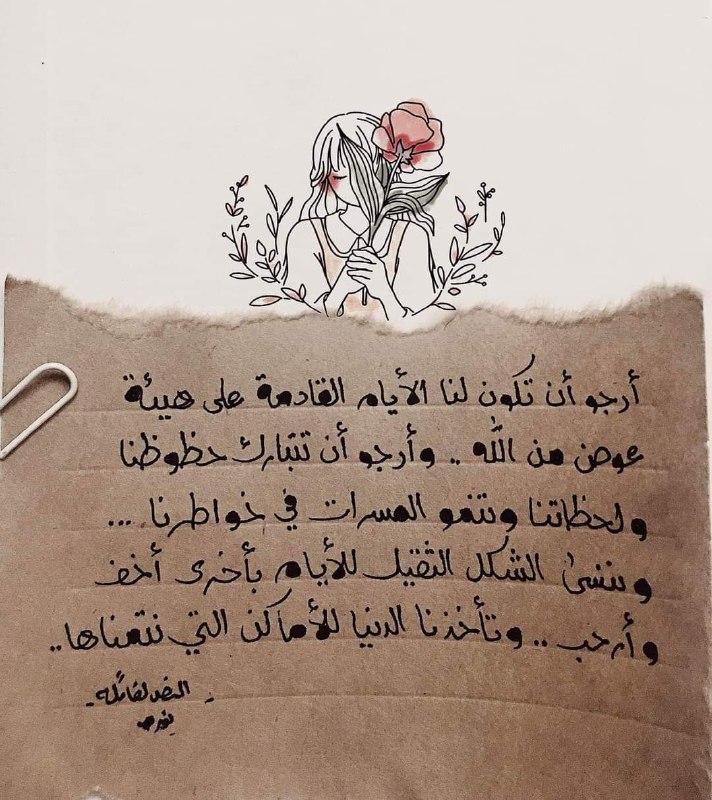 أرجو أن تكون لنا الأيام القادمة على هيئة
عوض من اللّه .. وأرجو أن تتبارك حظوظنا
ولحظاتنا وتنمو المسرات في خواطرنا ...
وننسىٰ الشكل الثقيل للأيام بأخرى أخف
وأرحب .. وتأخذنا الدنيا للأماكن التي نتمناها ..
- النص لقائله -